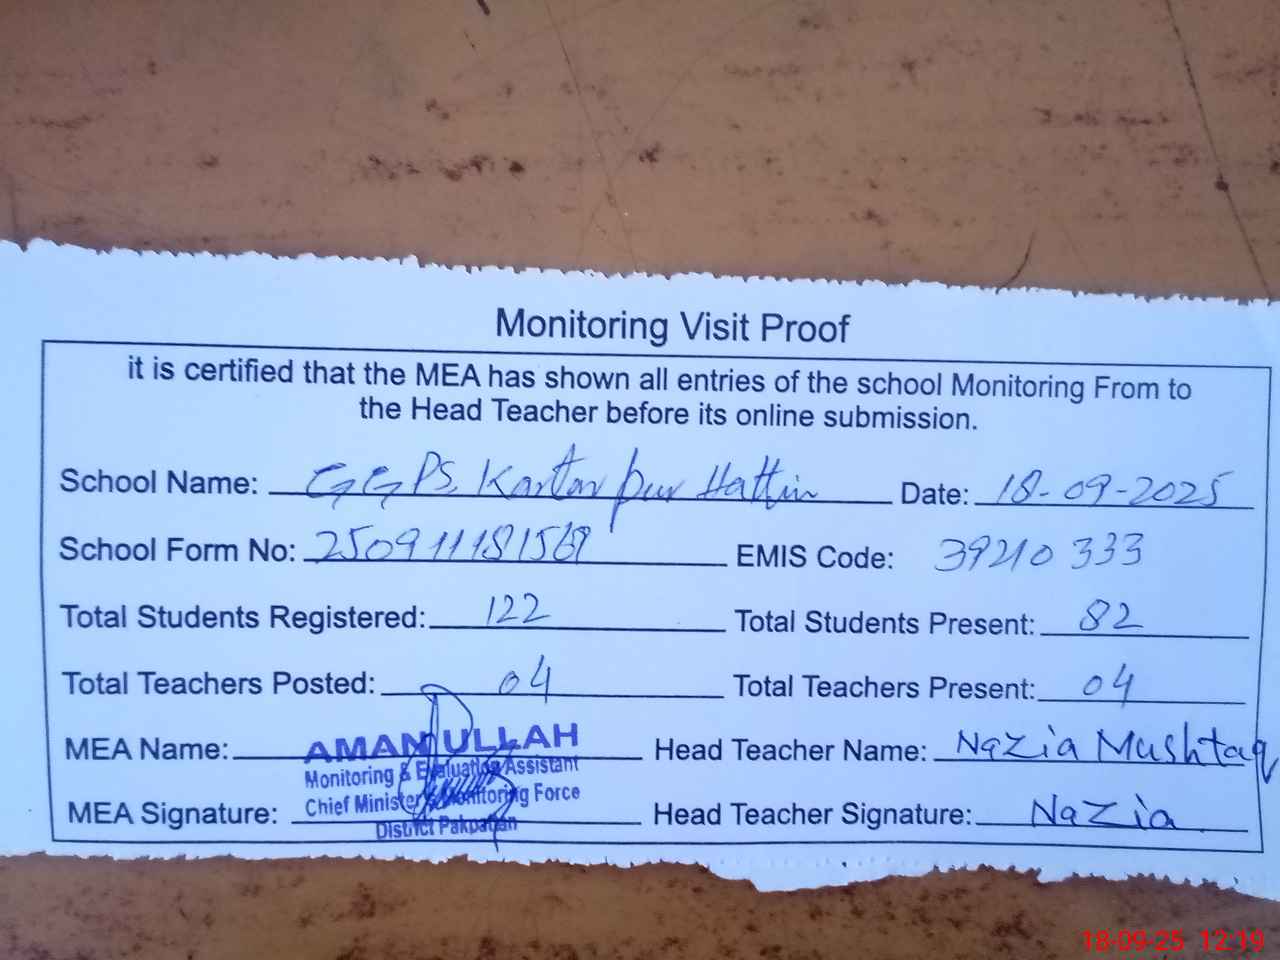 Monitoring Visit Proof
it is certified that the MEA has shown all entries of the school Monitoring From to
the Head Teacher before its online submission.
School Name: GGPS Kartar pur Hattin Date: 18-09-2025
School Form No: 250911181569 EMIS Code: 39210333
Total Students Registered: 122 Total Students Present: 82
Total Teachers Posted: 04 Total Teachers Present: 04
MEA Name: AMAN ULLAH Head Teacher Name: Nazia Mushtaq
Monitoring & Evaluation Assistant
Chief Minister's Monitoring Force
MEA Signature: Head Teacher Signature: Nazia
District Pakpattan
18-09-25 12:19